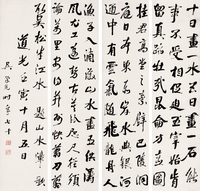 十日畫一水五日畫一石能
事不受相促迫王宰始肯
留真跡壯哉崑崙方壺圖
挂君高堂之素壁巴陵洞
庭日本東赤岸水與銀河
通中有雲氣隨飛龍舟人
漁子入浦漵山木盡亞洪
濤風尤工遠勢古莫比咫
尺應須論萬里焉得并州快剪刀
剪取吳松半江水 題山水障歌
道光壬寅十月五日
吳榮光時年七十